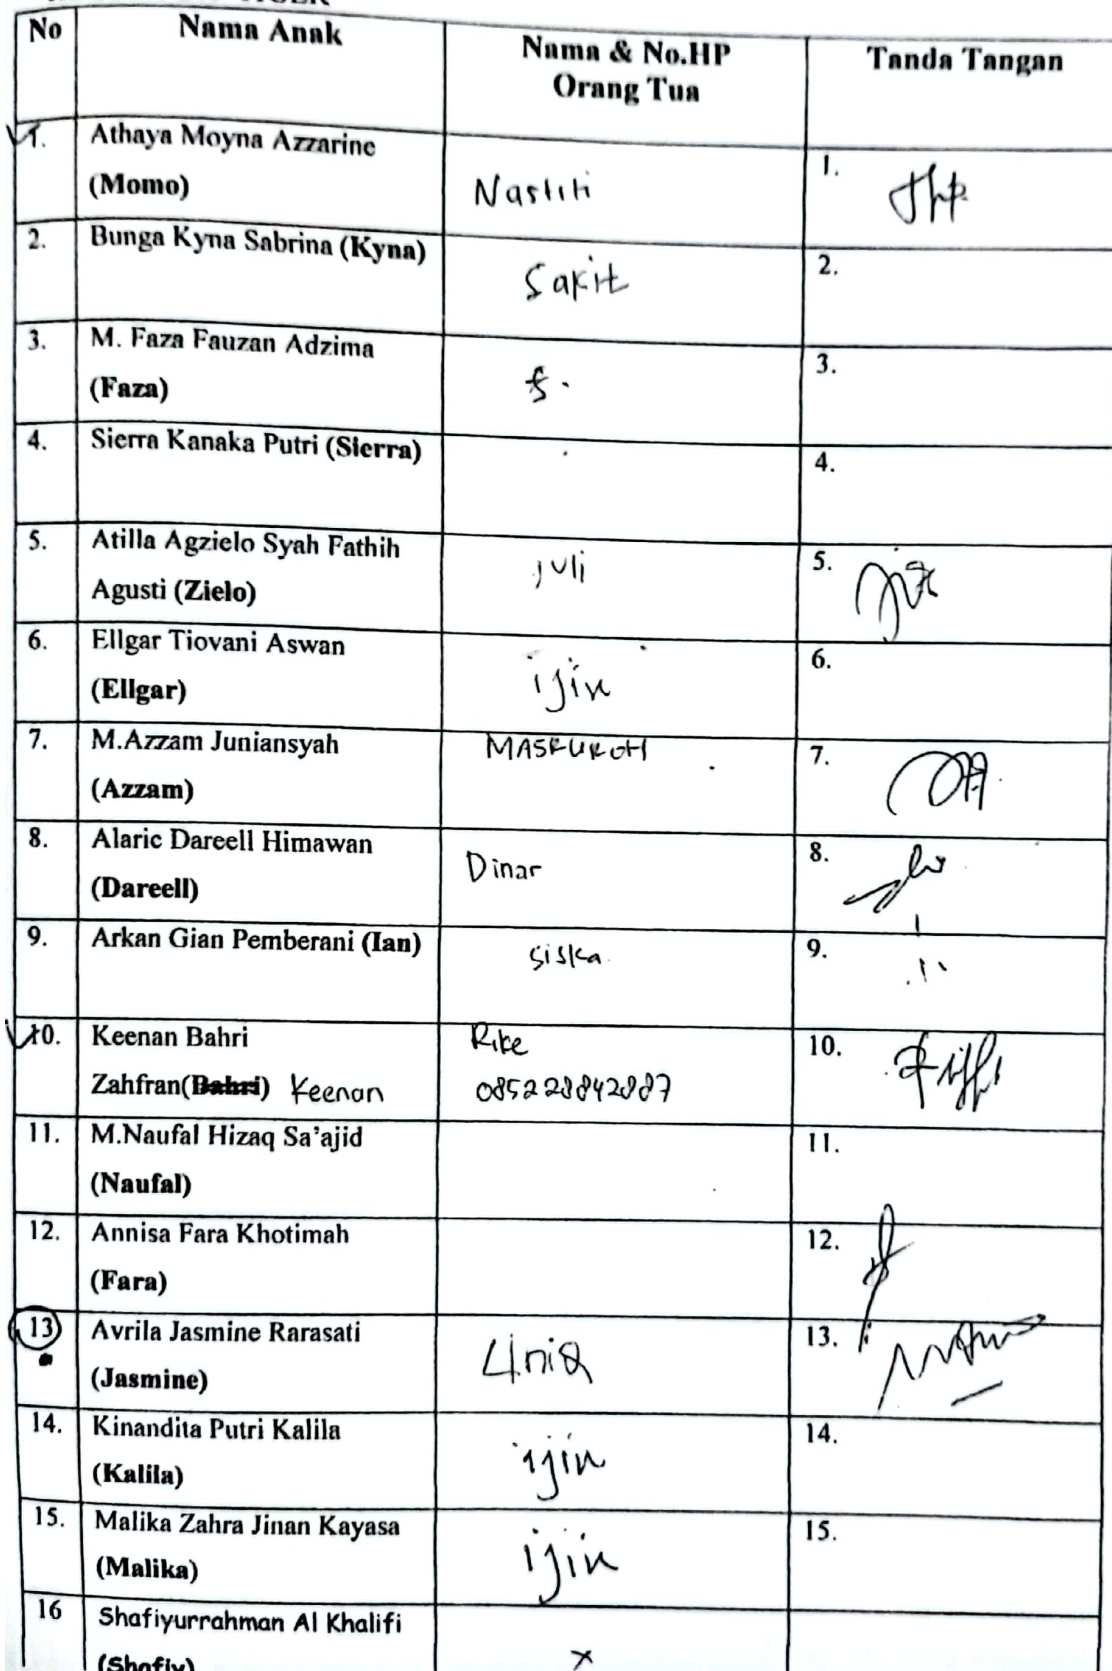 No Nama Anak Nama & No.HP Tanda Tangan
Orang Tua
1. Athaya Moyna Azzarine 1.
(Momo) Nastiti
2. Bunga Kyna Sabrina (Kyna) Sakit 2.
3. M. Faza Fauzan Adzima 3.
(Faza)
4. Sierra Kanaka Putri (Sierra) 4.
5. Atilla Agzielo Syah Fathih juli 5.
Agusti (Zielo)
6. Ellgar Tiovani Aswan 6.
(Ellgar) ijin
7. M.Azzam Juniansyah MASRUROH 7.
(Azzam)
8. Alaric Dareell Himawan Dinar 8.
(Dareell)
9. Arkan Gian Pemberani (Ian) Siska 9.
10. Keenan Bahri Rike 10.
Zahfran(Bahri) Keenan 085228842887
11. M.Naufal Hizaq Sa'ajid 11.
(Naufal)
12. Annisa Fara Khotimah 12.
(Fara)
13 Avrila Jasmine Rarasati 13.
(Jasmine)
14. Kinandita Putri Kalila 14.
(Kalila) ijin
15. Malika Zahra Jinan Kayasa 15.
(Malika) ijin
16 Shafiyurrahman Al Khalifi
(Shafiy) x